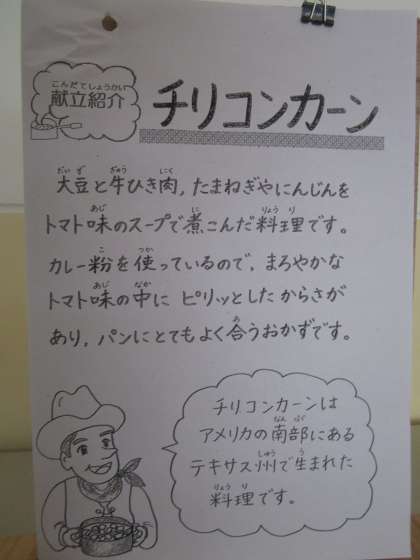 こんだてしょうかい
献立紹介
チリコンカーン
大豆と牛ひき肉,たまねぎやにんじんを
トマト味のスープで煮こんだ料理です。
カレー粉を使っているので,まろやかな
トマト味の中に ピリッとした からさが
あり,パンにとてもよく合うおかずです。
チリコンカーンは
アメリカの南部にある
テキサス州で生まれた
料理です。